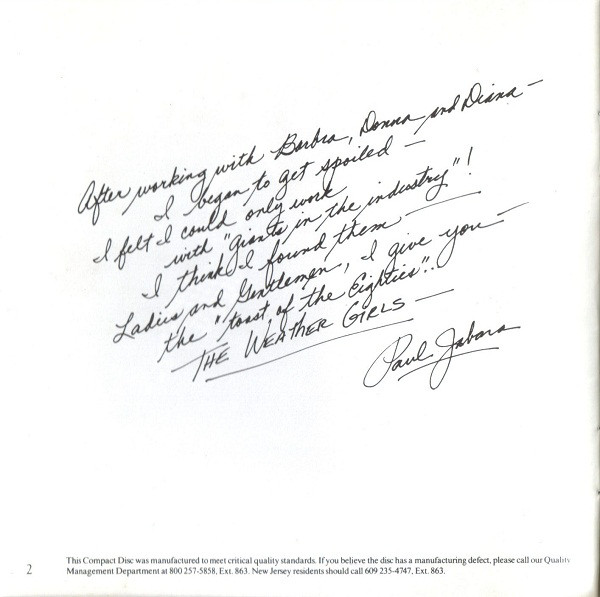 After working with Barbra, Donna and Diana—
I began to get spoiled —
I felt I could only work
with "giants in the industry"!
I think I found them —
Ladies and Gentlemen, I give you —
the "toast of the Eighties"..
THE WEATHER GIRLS —
Paul Jabara
This Compact Disc was manufactured to meet critical quality standards. If you believe the disc has a manufacturing defect, please call our Quality
2 Management Department at 800 257-5858, Ext. 863. New Jersey residents should call 609 235-4747, Ext. 863.